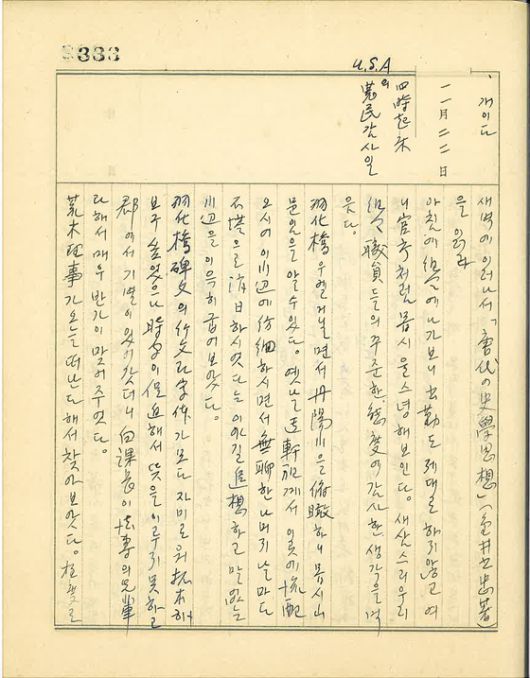 333
개이다
一一月二二日
四時起床
U.S.A의
農民감사일
새벽에 이러나서「唐代の史學思想」(金井之忠著)
을 읽다
아침에 組合에 나가보니 出勤도 제대로 하지 않고 여
니 官
처럼 몹시
해보인다. 새삼스러우리
組合 職員들의 꾸준한 態度에 감사한 생각을 먹
었다.
羽化橋 우를 거닐면서 丹陽川을 俯瞰하니 몹시
맑음을 알 수 있다. 옛날
軒
께서 이곳에
配
오시여 이 川辺에 彷徊하시면서 無聊한 나머지 날마다
石塔으로 消日하시였다는 이야길 追想하고 말없는
川辺을 이윽히 굽어보았다.
羽化橋碑文의 行文과 字体가 모다 자미로워 拓本해
보구 싶었으나 時間이 促迫해서 뜻을 이루지 못하고
郡에서 기별이 있어 갔더니 白課長이
의 兄
라 해서 매우 반가이 맞어주었다.
荒木理事가 오늘 떠난다 해서 찾아보았다.